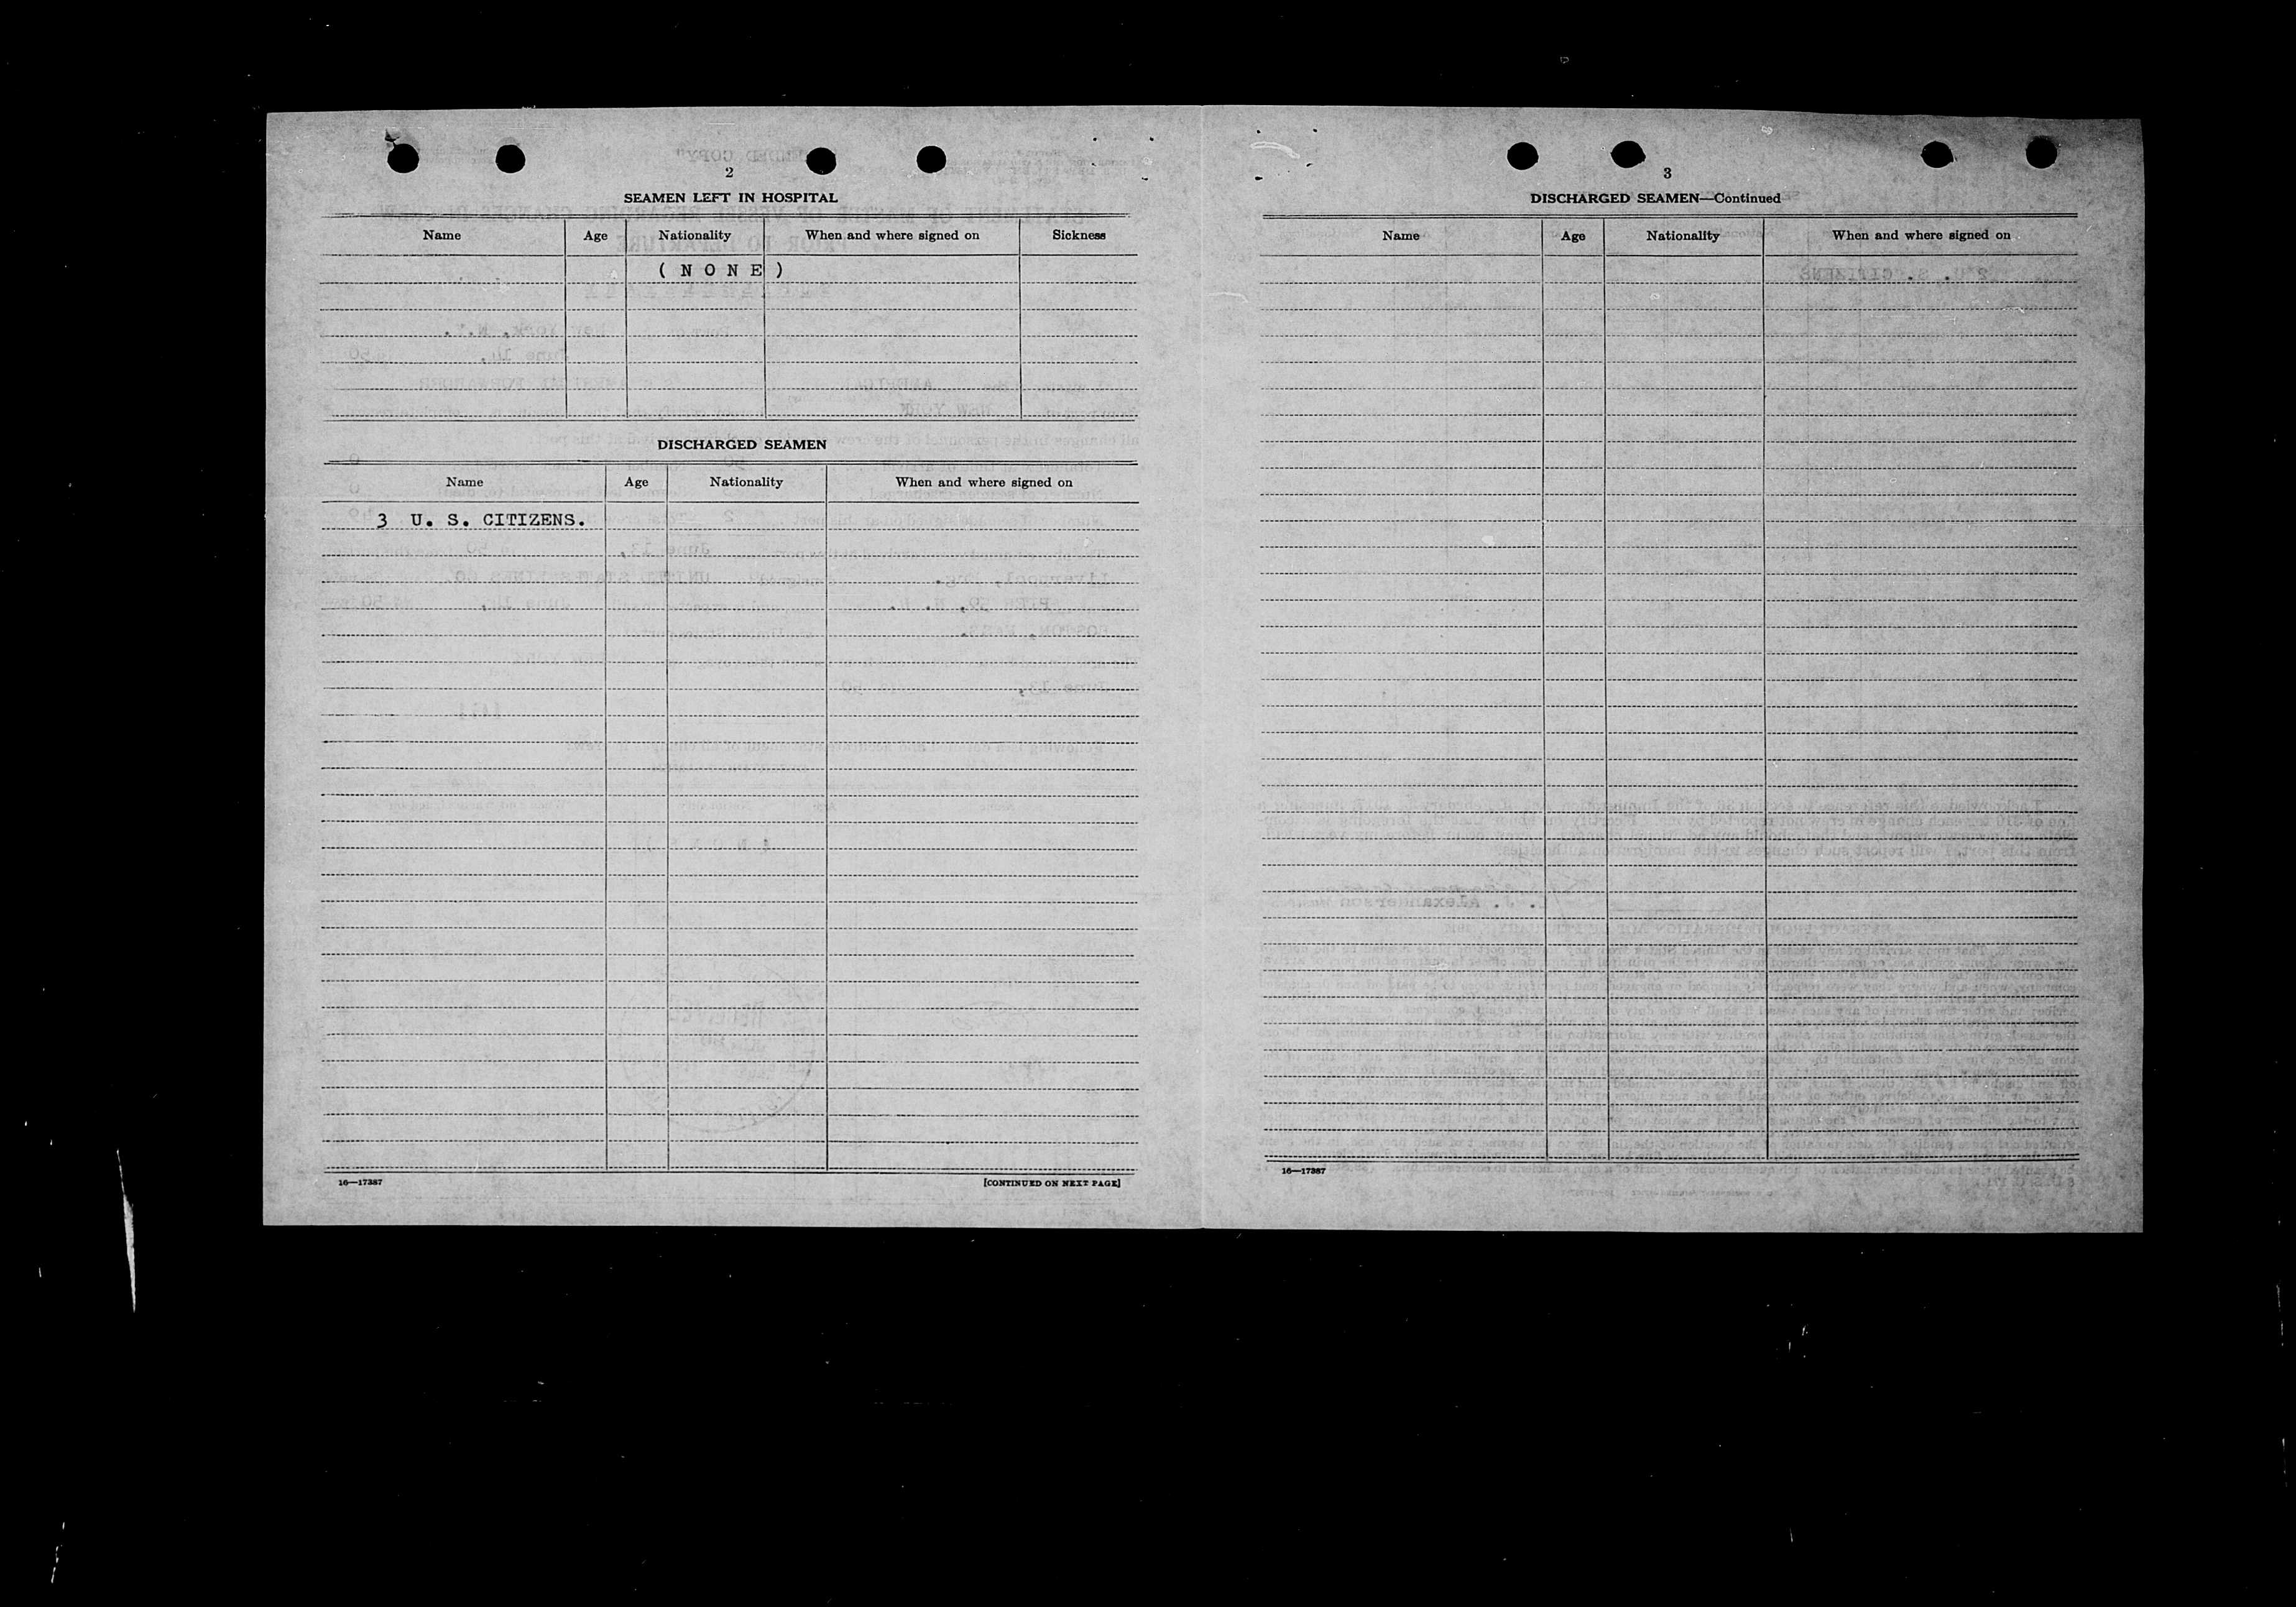 2
SEAMEN LEFT IN HOSPITAL
Name Age Nationality When and where signed on Sickness
( N O N E )
DISCHARGED SEAMEN
Name Age Nationality When and where signed on
3 U. S. CITIZENS.
16—17387 [CONTINUED ON NEXT PAGE]
3
DISCHARGED SEAMEN—Continued
Name Age Nationality When and where signed on
16—17387